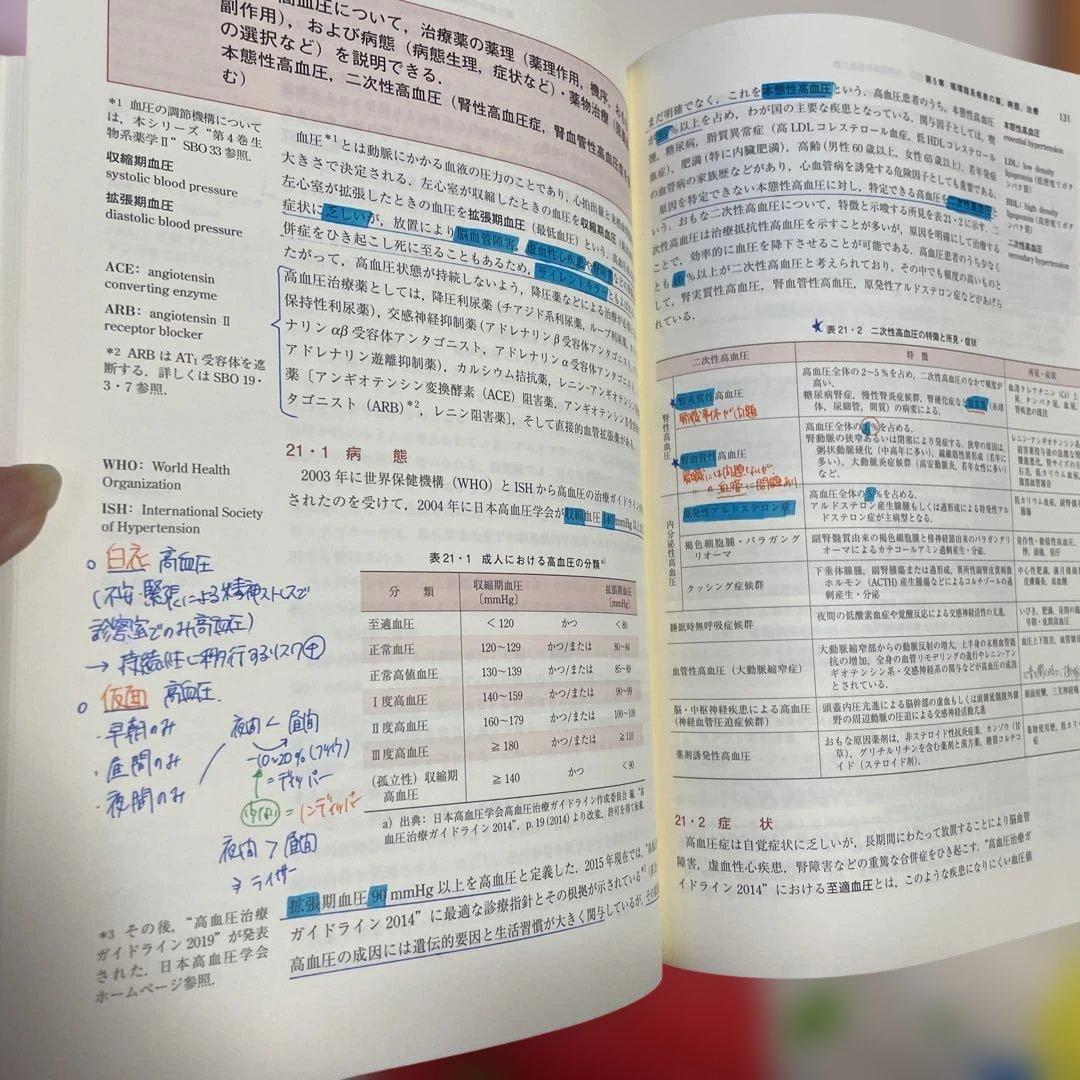 高血圧について，治療薬の薬理（薬理作用，機序，
副作用），および病態（病態生理，症状など）・薬物治療（医薬品
の選択など）を説明できる．
本態性高血圧，二次性高血圧（腎性高血圧症，腎血管性高血圧症
む）
*1 血圧の調節機構について
は，本シリーズ“第4巻 生
物系薬学Ⅱ”SBO 33 参照．
収縮期血圧
systolic blood pressure
拡張期血圧
diastolic blood pressure
ACE：angiotensin
converting enzyme
ARB：angiotensin Ⅱ
receptor blocker
*2 ARB は AT₁ 受容体を遮
断する．詳しくは SBO 19・
3・7 参照．
WHO：World Health
Organization
ISH：International Society
of Hypertension
血圧*1 とは動脈にかかる血液の圧力のことであり，心拍出量と末梢
大きさで決定される．左心室が収縮したときの血圧を収縮期血圧
左心室が拡張したときの血圧を拡張期血圧（最低血圧）という．高血圧
症状に乏しいが，放置により脳血管障害，虚血性心疾患や
併症をひき起こし死に至ることもあるため，サイレントキラーとも
たがって，高血圧状態が持続しないよう，降圧薬などによる治療が必要
高血圧治療薬としては，降圧利尿薬（チアジド系利尿薬，ループ利尿薬，
保持性利尿薬），交感神経抑制薬（アドレナリン β 受容体アンタゴニスト，
ナリン αβ 受容体アンタゴニスト，アドレナリン α 受容体アンタゴニスト，
アドレナリン遊離抑制薬），カルシウム拮抗薬，レニン-アンギオテンシン
薬〔アンギオテンシン変換酵素（ACE）阻害薬，アンギオテンシンⅡ受容
タゴニスト（ARB）*2，レニン阻害薬〕，そして直接的血管拡張薬がある．
21・1 病 態
2003 年に世界保健機構（WHO）と ISH から高血圧の治療ガイドライン
されたのを受けて，2004 年に日本高血圧学会が収縮期血圧 140 mmHg 以上
表 21・1 成人における高血圧の分類 a)
分 類 収縮期血圧〔mmHg〕 拡張期血圧〔mmHg〕
至適血圧 ＜120 かつ ＜80
正常血圧 120～129 かつ/または 80～84
正常高値血圧 130～139 かつ/または 85～89
Ⅰ度高血圧 140～159 かつ/または 90～99
Ⅱ度高血圧 160～179 かつ/または 100～109
Ⅲ度高血圧 ≧180 かつ/または ≧110
（孤立性）収縮期高血圧 ≧140 かつ ＜90
a）出典：日本高血圧学会高血圧治療ガイドライン作成委員会 編，“高
血圧治療ガイドライン 2014”，p.19 (2014) より改変．許可を得て転載．
拡張期血圧 90 mmHg 以上を高血圧と定義した．2015 年現在では，“高血
ガイドライン 2014” に最適な診療指針とその根拠が示されている*3
高血圧の成因には遺伝的要因と生活習慣が大きく関与しているが，
白衣 高血圧
(不安・緊張による精神ストレスで
診察室でのみ高血圧)
→ 持続性に移行するリスク⊕
仮面 高血圧
・早朝のみ
・昼間のみ
・夜間のみ
夜間 ＜ 昼間
-10~20%
= ディッパー
= ノンディッパー
夜間 ＞ 昼間
ライザー
*3 その後，“高血圧治療
ガイドライン 2019” が発表
された．日本高血圧学会
ホームページ参照．
第5章 循環器系疾患の薬，病態，治療
131
まだ明確でなく，これを本態性高血圧という．高血圧患者のうち，本態性高血圧
％以上を占め，わが国の主要な疾患となっている．関与因子としては，喫
煙，糖尿病，脂質異常症（高 LDL コレステロール血症，低 HDL コレステロール
血症），肥満（特に内臓肥満），高齢（男性 60 歳以上，女性 65 歳以上），若年発症
の血管病の家族歴などがあり，心血管病を誘発する危険因子としても重要である．
原因を特定できない本態性高血圧に対し，特定できる高血圧を二次性高血圧と
いう．おもな二次性高血圧について，特徴と示唆する所見を表 21・2 に示す．二
次性高血圧は治療抵抗性高血圧を示すことが多いが，原因を明確にして治療する
ことで，効率的に血圧を降下させることが可能である．高血圧患者のうち少なく
とも 10 ％以上が二次性高血圧と考えられており，その中でも頻度の高いものと
して，腎実質性高血圧，腎血管性高血圧，原発性アルドステロン症などがあげら
れている．
本態性高血圧
essential hypertension
LDL：low density
lipoprotein（低密度リポタ
ンパク質）
HDL：high density
lipoprotein（高密度リポタ
ンパク質）
二次性高血圧
secondary hypertension
★ 表 21・2 二次性高血圧の特徴と所見・症状
二次性高血圧 特 徴 所見・症状
腎性高血圧
腎実質性高血圧
高血圧全体の 2～5 ％を占め，二次性高血圧のなかで頻度が
高い．
糖尿病腎症，慢性腎炎症候群，腎硬化症など
体，尿細管，間質）の病変による．
腎臓事体が問題
腎血管性高血圧
高血圧全体の 1 ％を占める．
腎動脈の狭窄あるいは閉塞により発症する．狭窄の原因は，
粥状動脈硬化（中高年に多い），線維筋性異形成（若年に
多い），大動脈炎症候群（高安動脈炎，若年女性に多い）
など．
腎臓には問題ないが，
〃 の血管に問題あり
内分泌性高血圧
原発性アルドステロン症
高血圧全体の 5 ％を占める．
アルドステロン産生腺腫もしくは過形成による特発性アル
ドステロン症が主病型となる．
褐色細胞腫・パラガング
リオーマ
副腎髄質由来の褐色細胞腫と傍神経節由来のパラガングリ
オーマによるカテコールアミン過剰産生・分泌．
クッシング症候群
下垂体腺腫，副腎腺腫または過形成，異所性副腎皮質刺激
ホルモン（ACTH）産生腫瘍などによるコルチゾールの過
剰産生・分泌
睡眠時無呼吸症候群
夜間の低酸素血症や覚醒反応による交感神経活性の亢進．
血管性高血圧（大動脈縮窄症）
大動脈縮窄部からの動脈反射の増大，上半身の末梢血管抵
抗の増加，全身の血管リモデリングの進行やレニン-アン
ギオテンシン系・交感神経系の関与などが高血圧の成因
とされている．
脳・中枢神経疾患による高血圧
（神経血管圧迫症候群）
頭蓋内圧亢進による脳幹部の虚血もしくは頭側延髄腹外側
野の周辺動脈の圧迫による交感神経活動亢進
薬剤誘発性高血圧
おもな原因薬剤は，非ステロイド性抗炎症薬，カンゾウ（甘
草），グリチルリチンを含む薬剤と漢方薬，糖質コルチコ
イド（ステロイド剤）．
21・2 症 状
高血圧症は自覚症状に乏しいが，長期間にわたって放置することにより脳血管
障害，虚血性心疾患，腎障害などの重篤な合併症をひき起こす．“高血圧治療ガ
イドライン 2014” における至適血圧とは，このような疾患になりにくい血圧値